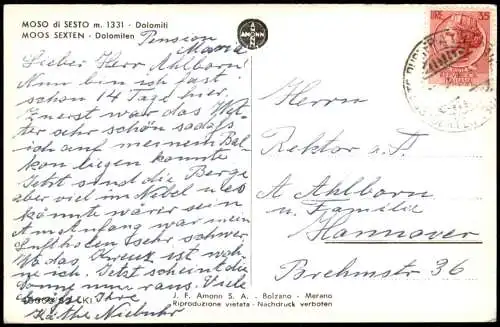 MOSO di SESTO m. 1331 - Dolomiti
MOOS SEXTEN - Dolomiten
Pension
Maria
Lieber Herr Ahlborn!
Nun bin ich fast
schon 14 Tage hier.
Zuerst war das Wet-
ter sehr schön sodaß
ich auf meinem Bal
kon liegen konnte
Jetzt sind die Berge
aber viel im Nebel u es
könnte wärmer sein
Am Anfang war mein
Luftholen sehr schwer
Wo das Kreuz ist woh
ne ich. Jetzt scheint die
Sonne nur raus. Viele
Ihre
Käthe Niebuhr
AMONN
LIRE 35
Herrn
Rektor a. D.
A Ahlborn
u. Familie
Hannover
Brehmstr 36
J. F. Amonn S. A. - Bolzano - Merano
Riproduzione vietata - Nachdruck verboten